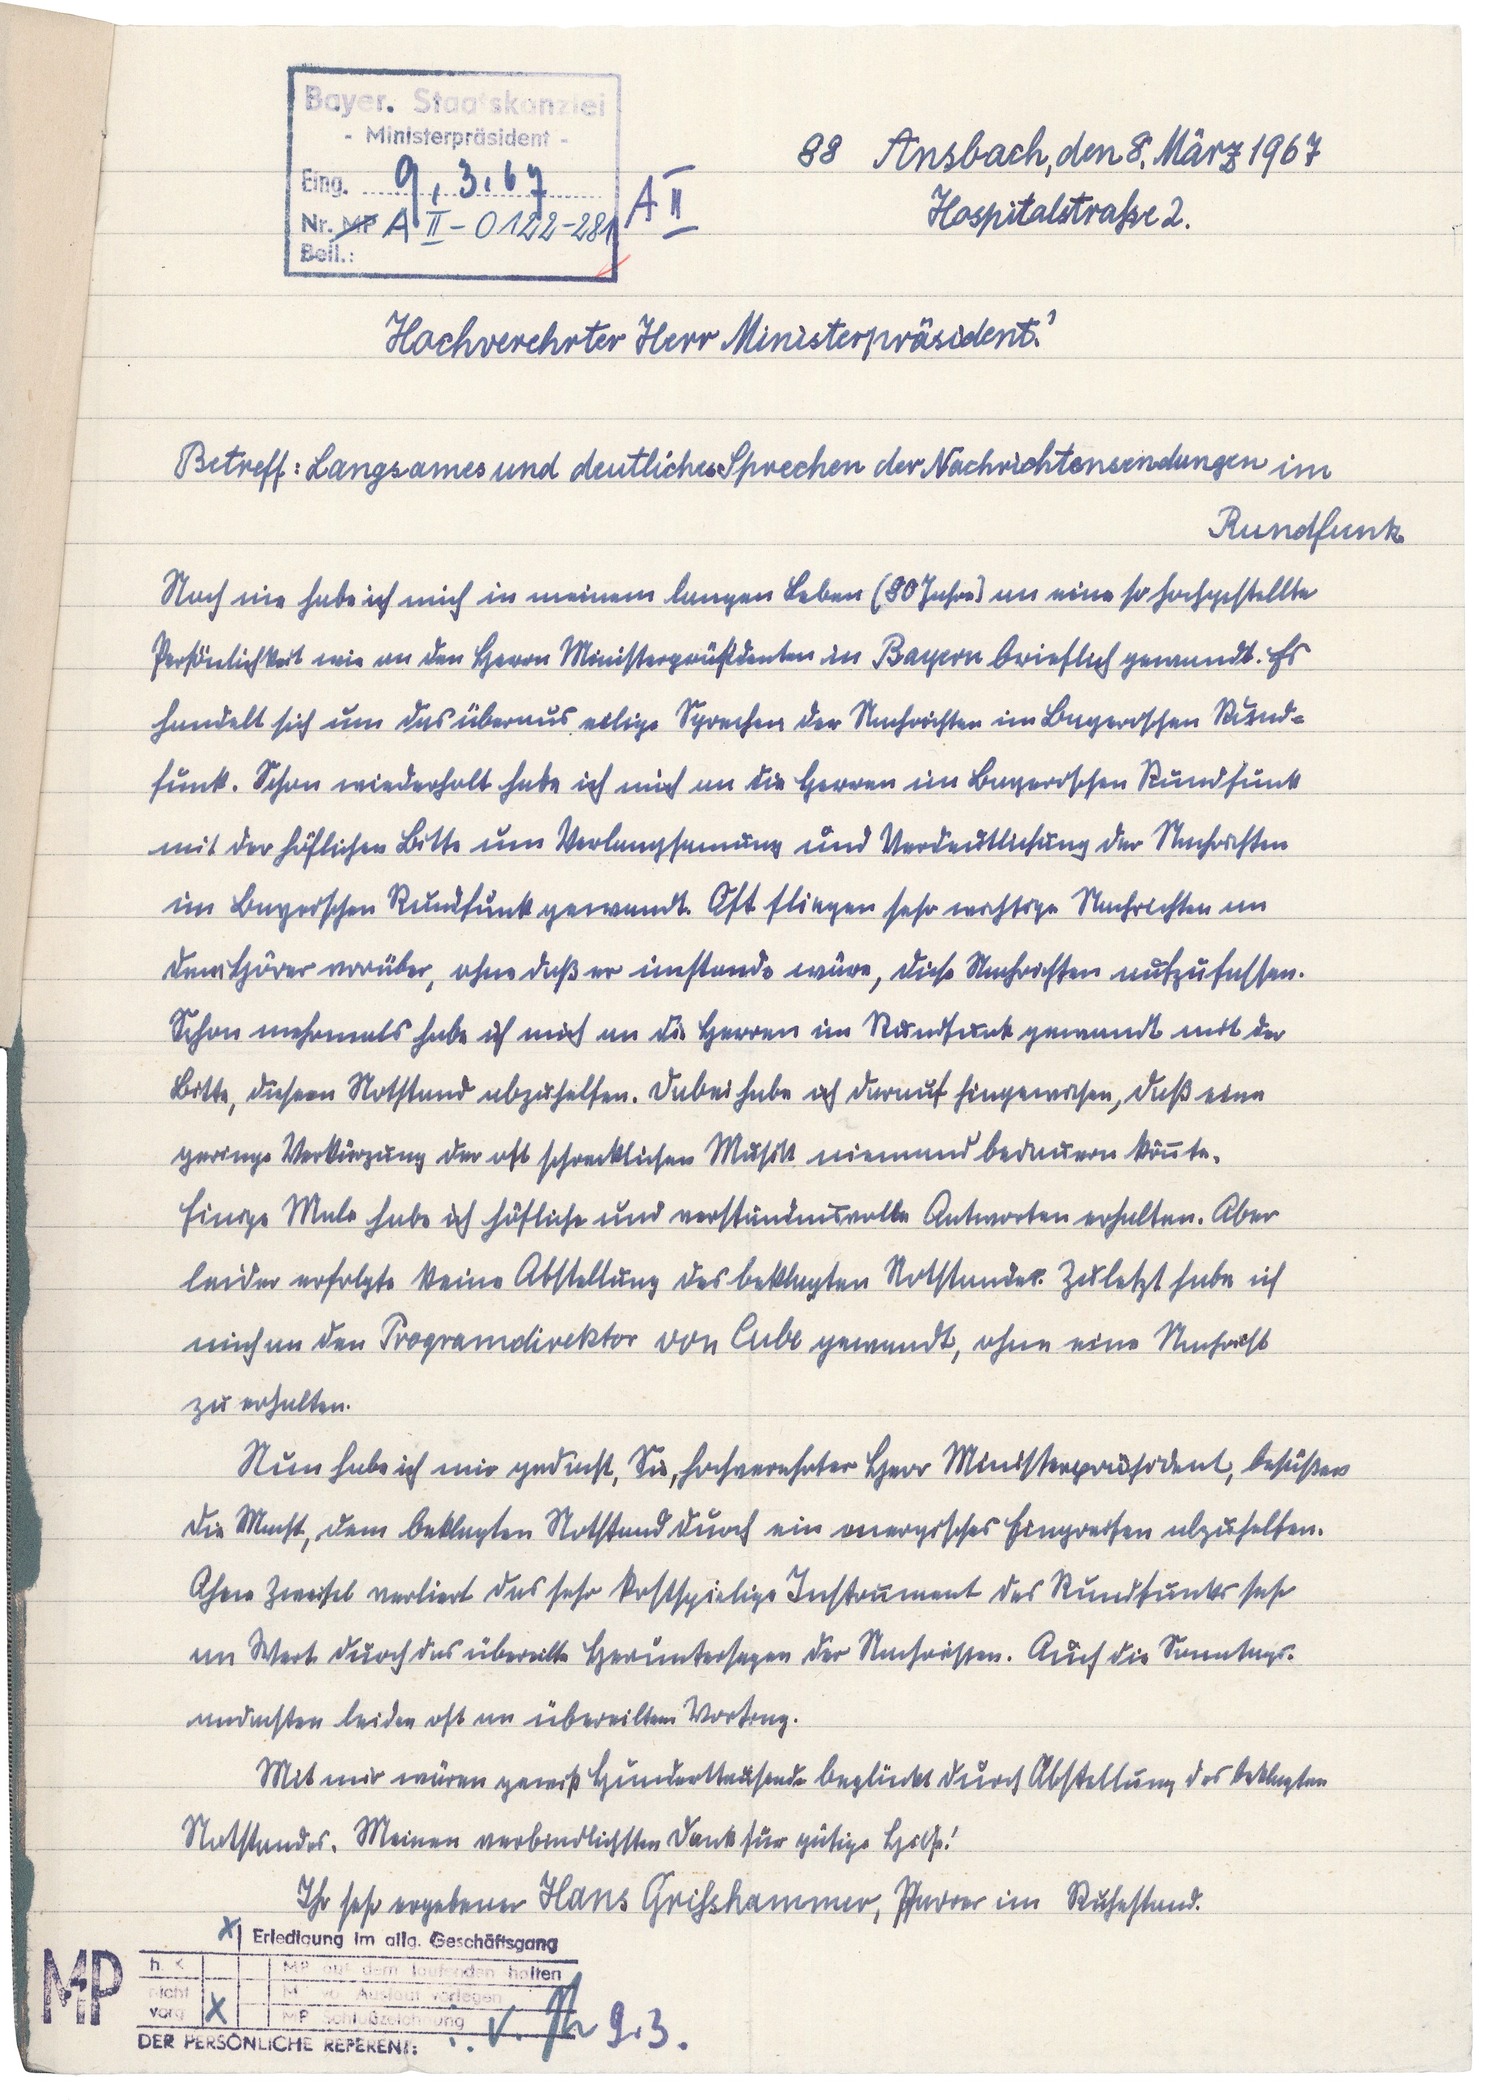 Bayer. Staatskanzlei
- Ministerpräsident -
Eing. 9.3.67
Nr. MP A II - 0122-281
Beil.:
A II
88 Ansbach, den 8. März 1967
Hospitalstraße 2.
Hochverehrter Herr Ministerpräsident!
Betreff: Langsames und deutliches Sprechen der Nachrichtensendungen im
Rundfunk
Noch nie habe ich mich in meinem langen Leben (80 Jahre) an eine so hochgestellte
Persönlichkeit wie an den Herrn Ministerpräsidenten in Bayern brieflich gewandt. Es
handelt sich um das überaus eilige Sprechen der Nachrichten im Bayerischen Rund-
funk. Schon wiederholt habe ich mich an die Herren im Bayerischen Rundfunk
mit der höflichen Bitte um Verlangsamung und Verdeutlichung der Nachrichten
im Bayerischen Rundfunk gewandt. Oft fliegen sehr wichtige Nachrichten an
dem Hörer vorüber, ohne daß er imstande wäre, diese Nachrichten aufzufassen.
Schon mehrmals habe ich mich an die Herren im Rundfunk gewandt mit der
Bitte, diesem Notstand abzuhelfen. Dabei habe ich darauf hingewiesen, daß eine
geringe Verkürzung der oft schrecklichen Musik niemand bedauern könnte.
Einige Male habe ich höfliche und verständnisvolle Antworten erhalten. Aber
leider erfolgte keine Abstellung des beklagten Notstandes. Zuletzt habe ich
mich an den Programdirektor von Cube gewandt, ohne eine Nachricht
zu erhalten.
Nun habe ich mir gedacht, Sie, hochverehrter Herr Ministerpräsident, besäßen
die Macht, dem beklagten Notstand durch ein energisches Eingreifen abzuhelfen.
Ohne Zweifel verliert das sehr kostspielige Instrument des Rundfunks sehr
an Wert durch das übereilte Heruntersagen der Nachrichten. Auch die Sonntags-
andachten leiden oft an übereiltem Vortrag.
Mit mir wären gewiß Hunderttausende beglückt durch Abstellung des beklagten
Notstandes. Meinen verbindlichsten Dank für gütige Hilfe!
Ihr sehr ergebener Hans Grißhammer, Pfarrer im Ruhestand.
x Erledigung im allg. Geschäftsgang
MP
MP auf dem laufenden halten
nicht
MP vor Auslauf vorlegen
vorg. x
MP Schlußzeichnung
DER PERSÖNLICHE REFERENT:
9.3.